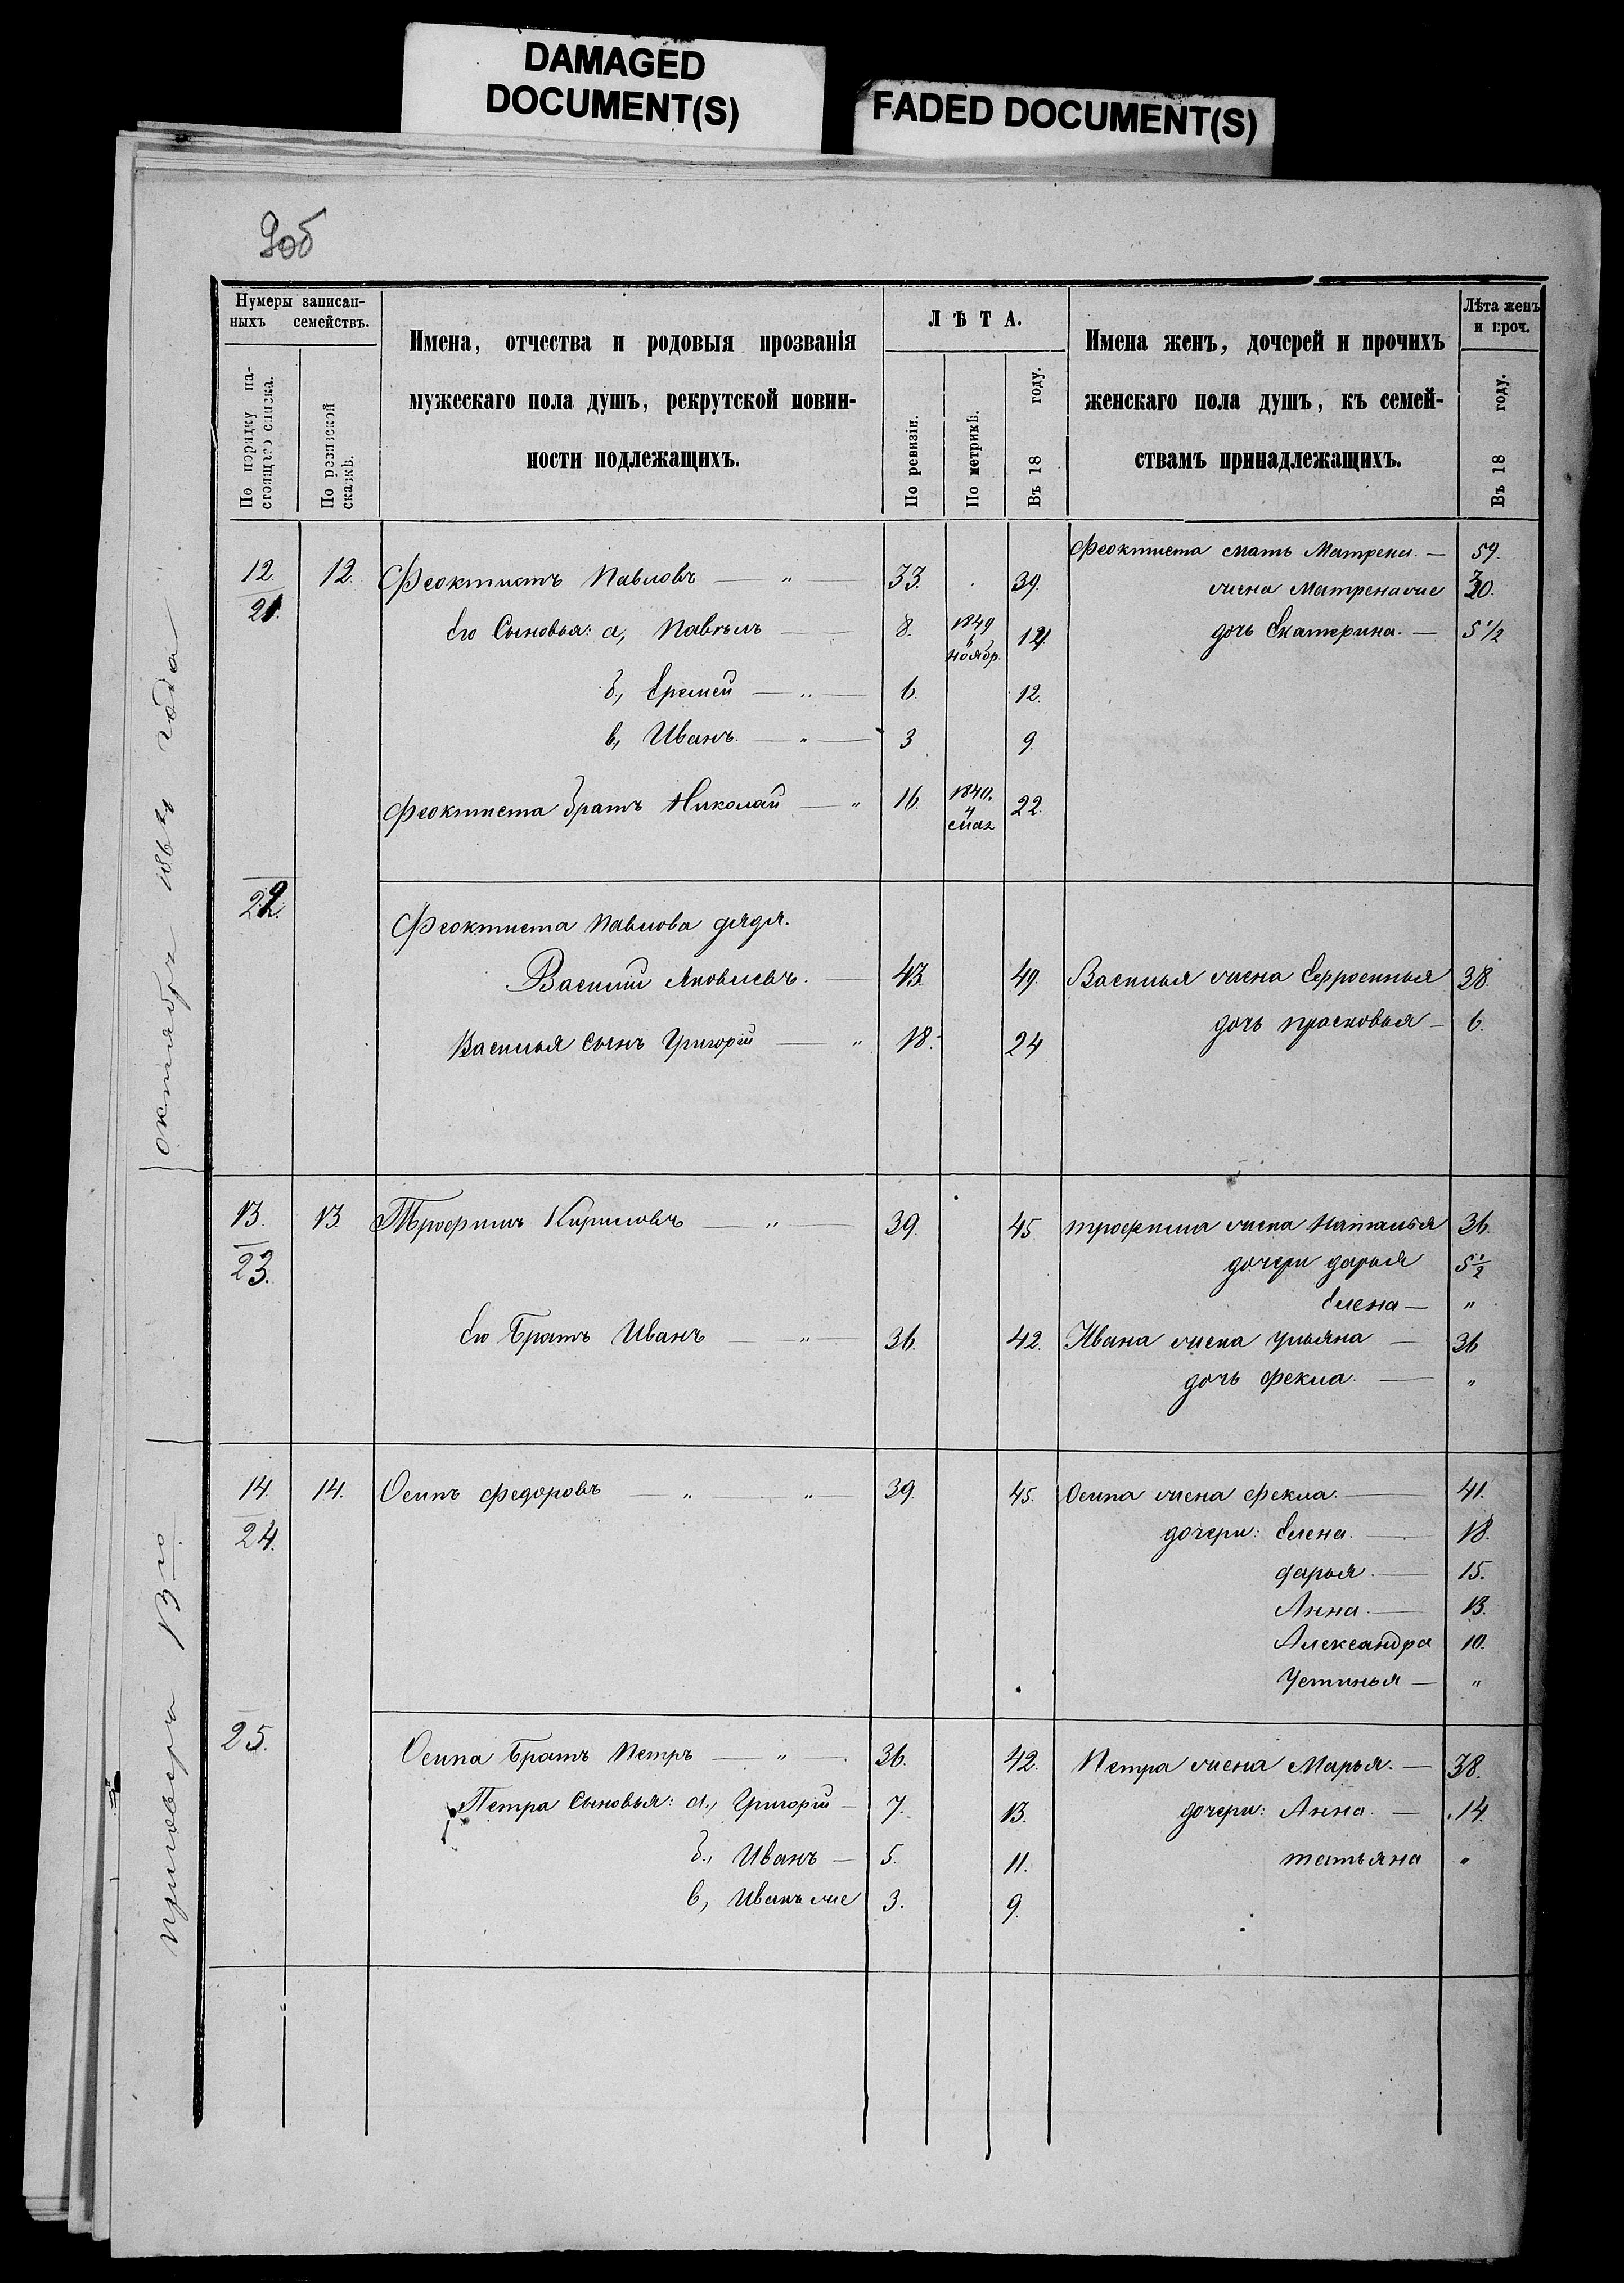 DAMAGED
DOCUMENT(S)
FADED DOCUMENT(S)
9об
Нумеры записан-
ныхъ семействъ.
По порядку на-
стоящаго списка.
По ревизской
сказкѣ.
Имена, отчества и родовыя прозванія
мужескаго пола душъ, рекрутской повин-
ности подлежащихъ.
ЛѢТА.
По ревизіи.
По метрикѣ.
Въ 18 году.
Имена женъ, дочерей и прочихъ
женскаго пола душъ, къ семей-
ствамъ принадлежащихъ.
Лѣта женъ
и проч.
Въ 18 году.
Феоктиста мать Матрена. — 59.
12 12. Феоктистъ Павловъ — " — 33. 39. жена Матрена же 30.
21.
Его Сыновья: а, Павелъ — 8. 1849 6 ноябр. 14 дочь Екатерина. — 5 1/2
б, Еремей — " — 6. 12.
в, Иванъ — " — 3 9.
Феоктиста братъ Николай — " 16. 1840. 4 маа 22.
22.
Феоктиста Павлова дядя.
Василий Яковлевъ. — 43. 49. Василья жена Ефросинья 38.
Василья сынъ Григорій — " 18. 24 дочь Прасковья — 6.
13. 13. Трофимъ Кириловъ — " 39. 45. Трофима жена Наталья 36.
23.
дочери Дарья 5 1/2
Елена — "
Его Братъ Иванъ — " — 36. 42. Ивана жена Ульяна — 36
дочь Фекла. — "
14. 14. Осипъ Федоровъ — " — " 39. 45. Осипа жена Фекла. — 41.
24.
дочери: Елена. — 18.
Дарья. — 15.
Анна. — 13.
Александра 10.
Устинья — "
25.
Осипа Братъ Петръ — " — 36. 42. Петра жена Марья. — 38.
Петра Сыновья: а, Григорій — 7. 13. дочери: Анна. — 14.
б, Иванъ — 5. 11. Татьяна "
в, Иванъ же 3. 9.
приговора 13го октября 1864 года